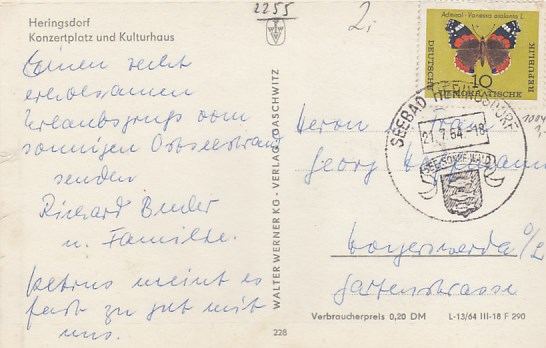 Heringsdorf
Konzertplatz und Kulturhaus
2255
2,-
Einen recht
erholsamen
Urlaubsgruß vom
sonnigen Ostseestrand
senden
Richard
u. Familie.
Petrus meint es
fast zu gut mit
uns.
WALTER WERNER KG - VERLAG GASCHWITZ
228
Admiral - Vanessa atalanta L.
10
DEUTSCHE DEMOKRATISCHE REPUBLIK
SEEBAD HERINGSDORF
21.7.64.-18
SEE·SONNE·WALD
Herrn u. Frau
Georg
Hoyerswerda O/L
Gartenstrasse
Verbraucherpreis 0,20 DM L-13/64 III-18 F 290